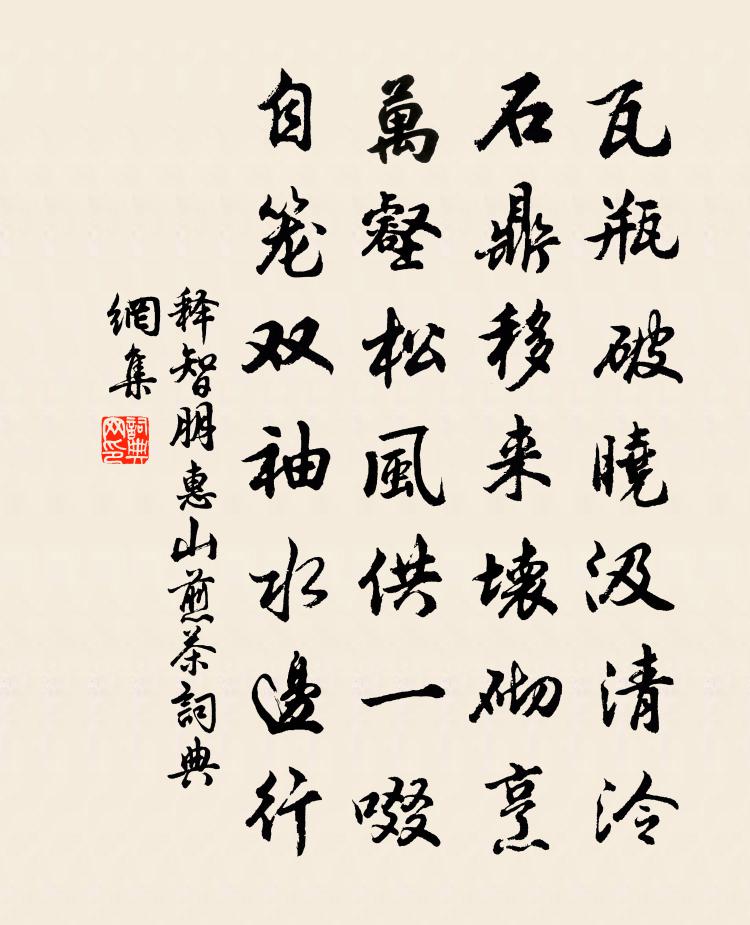 瓦瓶破曉汲清泠
石鼎移来壊砌烹
萬壑松風供一啜
自笼双袖水邊行
释智朋惠山煎茶詞典
網集
詞典
网印